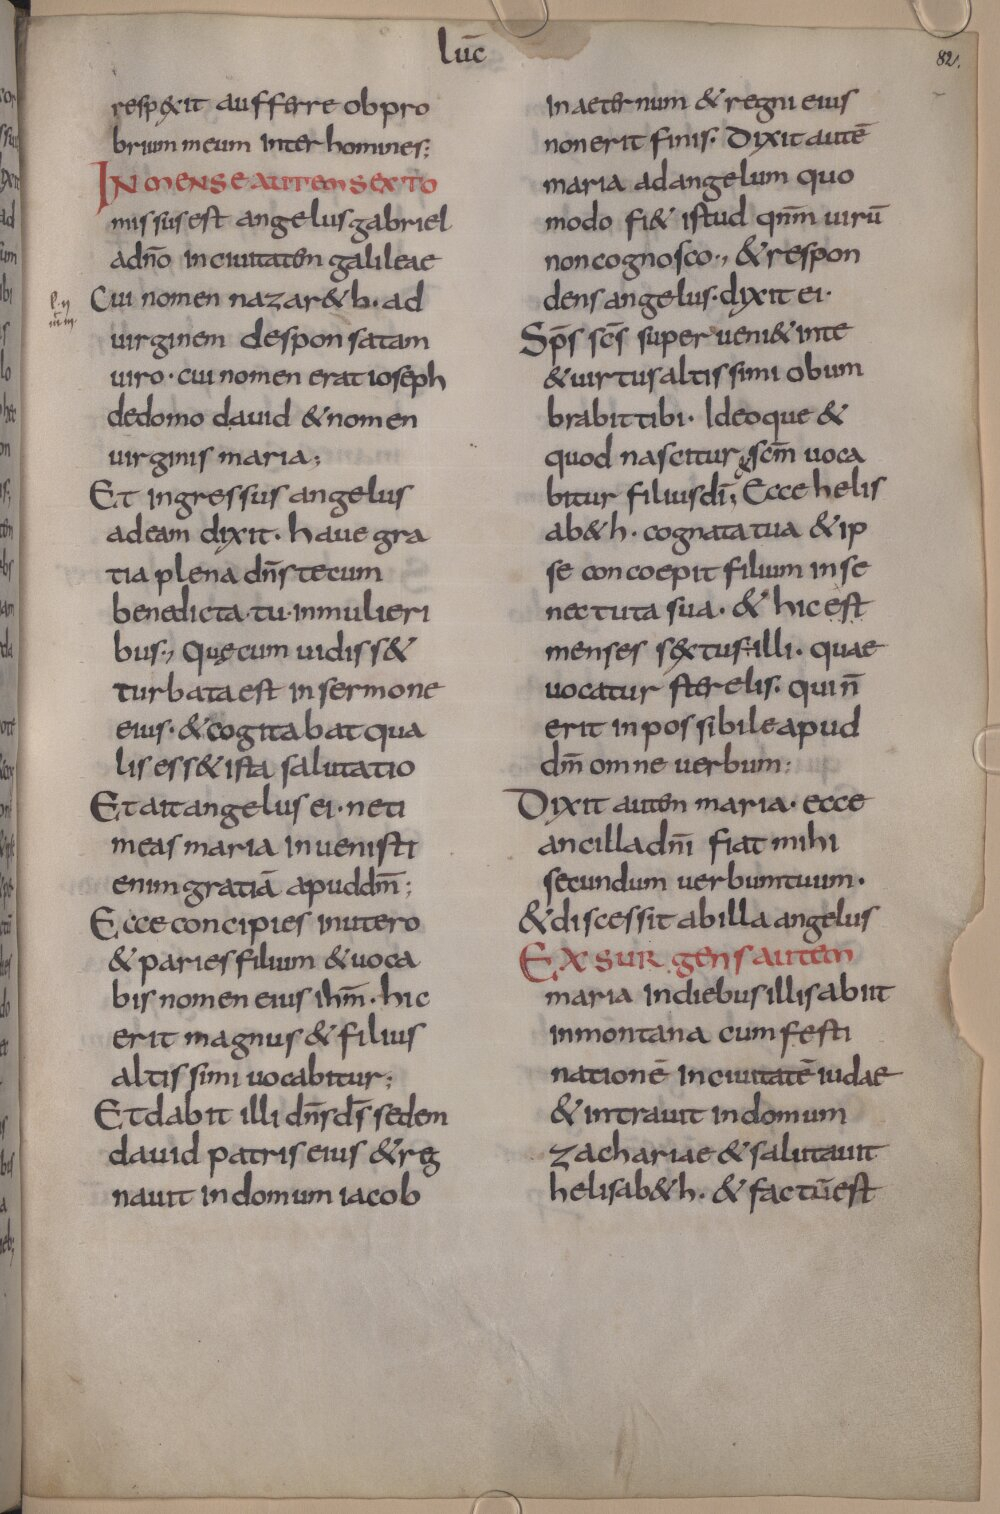 luc̄
82.
respexit aufferre obpro
brium meum inter homines;
IN MENSE AUTEM SEXTO
missus est angelus gabriel
ad dn̄o in ciuitatem galileae
Cui nomen nazar&h. ad
uirginem desponsatam
uiro. cui nomen erat ioseph
de domo dauid & nomen
uirginis maria;
Et ingressus angelus
ad eam dixit. haue gra
tia plena dn̄s tecum
benedicta tu in mulieri
bus., Quę cum uidiss&
turbata est in sermone
eius. & cogitabat qua
lis ess& ista salutatio
Et ait angelus ei. ne ti
meas maria inuenisti
enim gratiā apud dm̄;
Ecce concipies in utero
& paries filium & uoca
bis nomen eius ihm̄. hic
erit magnus & filius
altissimi uocabitur;
Et dabit illi dn̄s ds̄ sedem
dauid patris eius & reg
nauit in domum iacob
in aeternum & regni eius
non erit finis. Dixit autē
maria ad angelum quo
modo fi& istud qnm̄ uirū
non cognosco., & respon
dens angelus. dixit ei.
Sps̄ scs̄ superueni& in te
& uirtus altissimi obum
brabit tibi. Ideoque &
quod nascitur scm̄ uoca
bitur filius dī; Ecce helis
ab&h. cognata tua & ip
se concoepit filium in se
nectuta sua. & hic est
menses sextus illi. quae
uocatur sterelis. qui n̄
erit inpossibile apud
dm̄ omne uerbum;
Dixit autem maria. ecce
ancilla dn̄i fiat mihi
secundum uerbum tuum.
& discessit ab illa angelus
EXSURgens autem
maria in diebus illis abiit
in montana cum festi
nationē in ciuitatē iudae
& intrauit in domum
zachariae & salutauit
helisab&h. & factū est